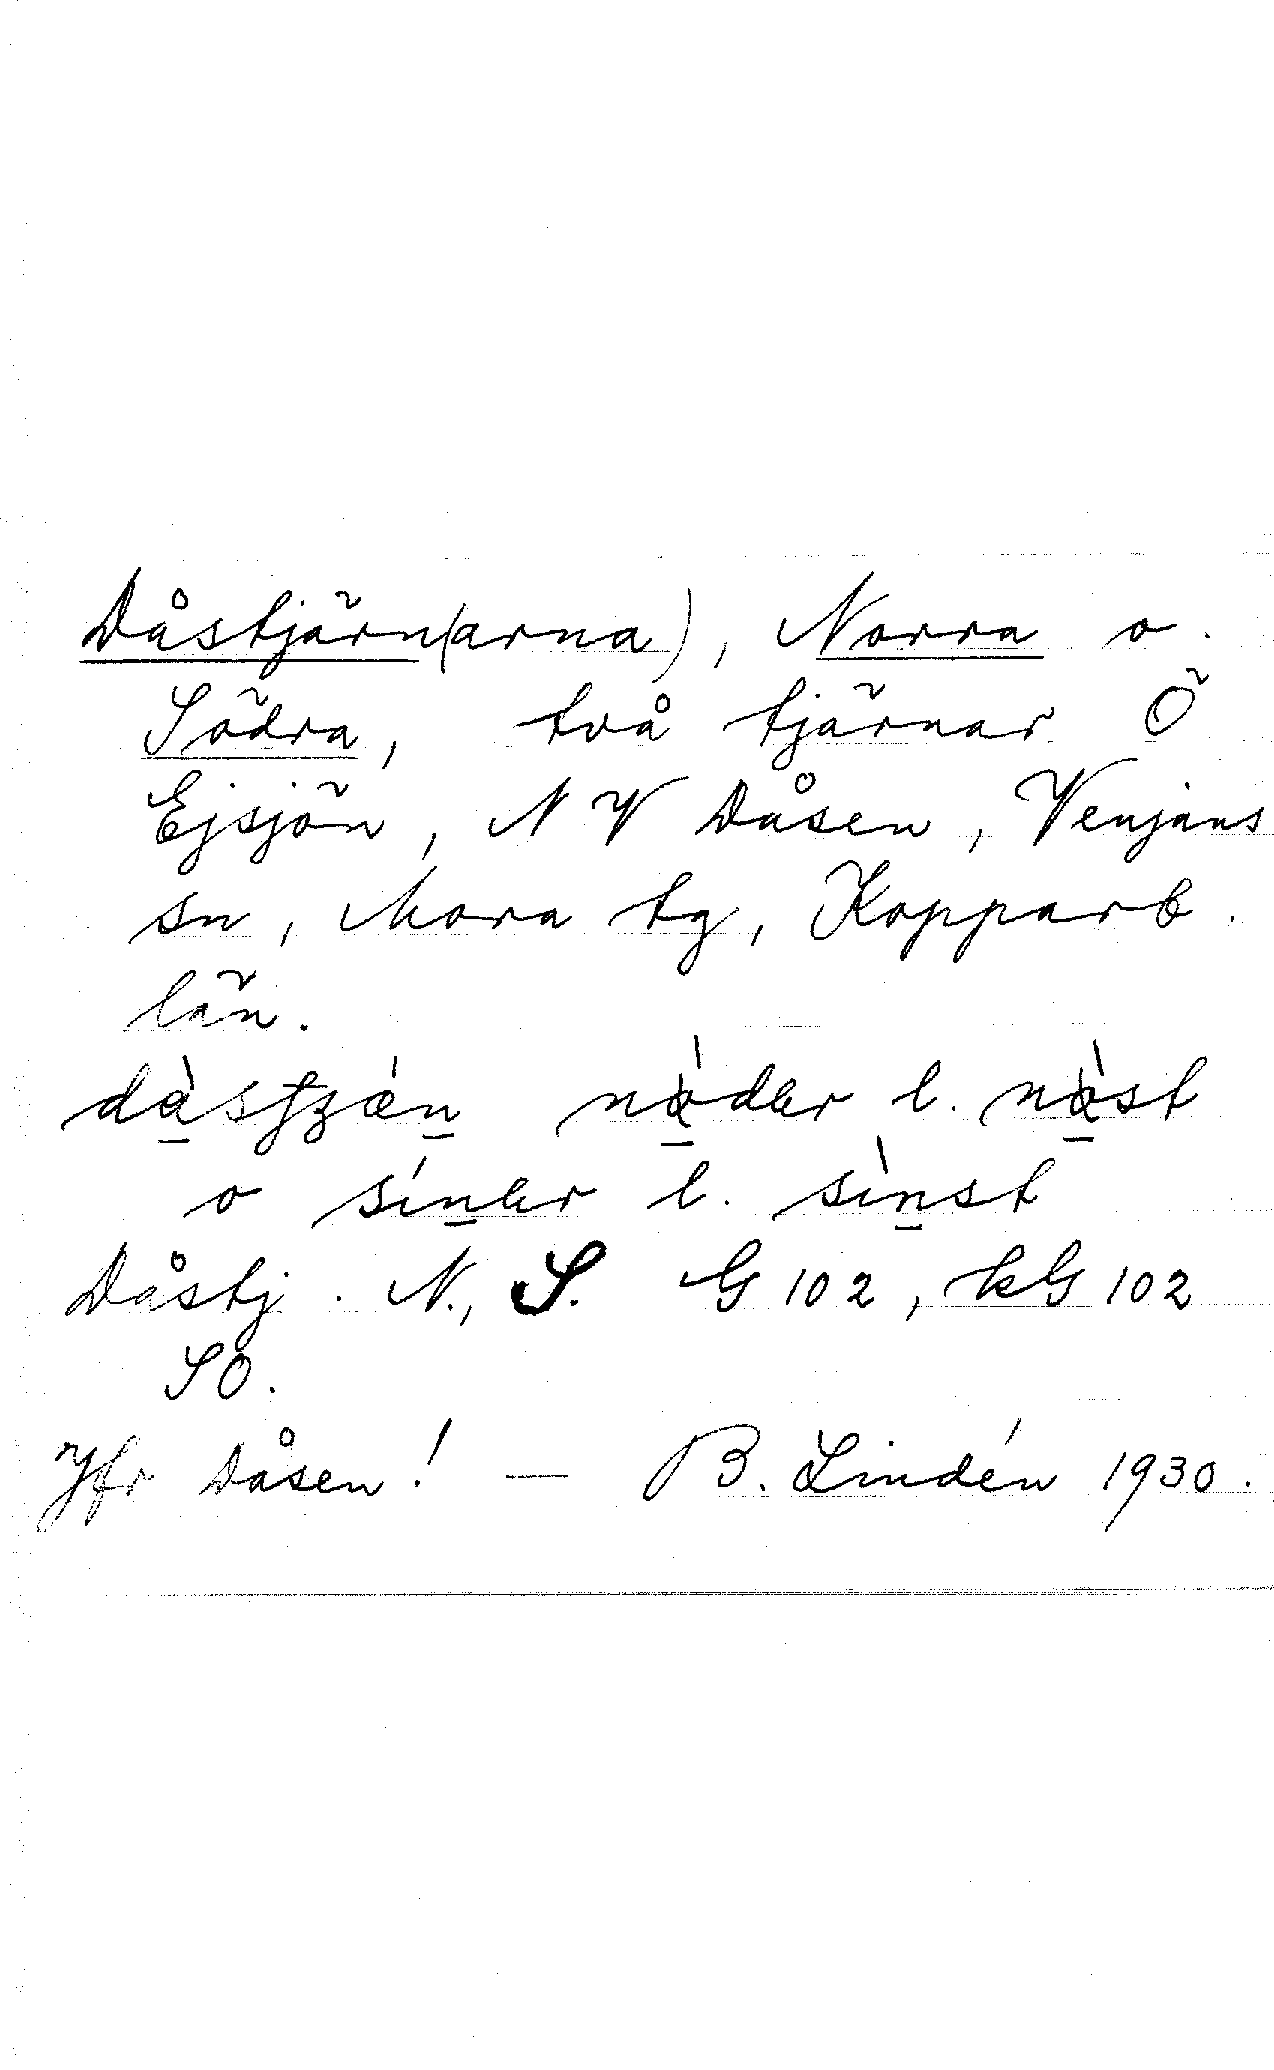 Dåstjärn(arna), Norra o.
Södra, två tjärnar Ö
Ejsjön, NV Dåsen, Venjans
sn, Mora tg, Kopparb.
län.
l.
o l. sìnst
Dåstj. N., S. G 102, kG 102
SO.
Jfr Dåsen! — B. Lindén 1930.